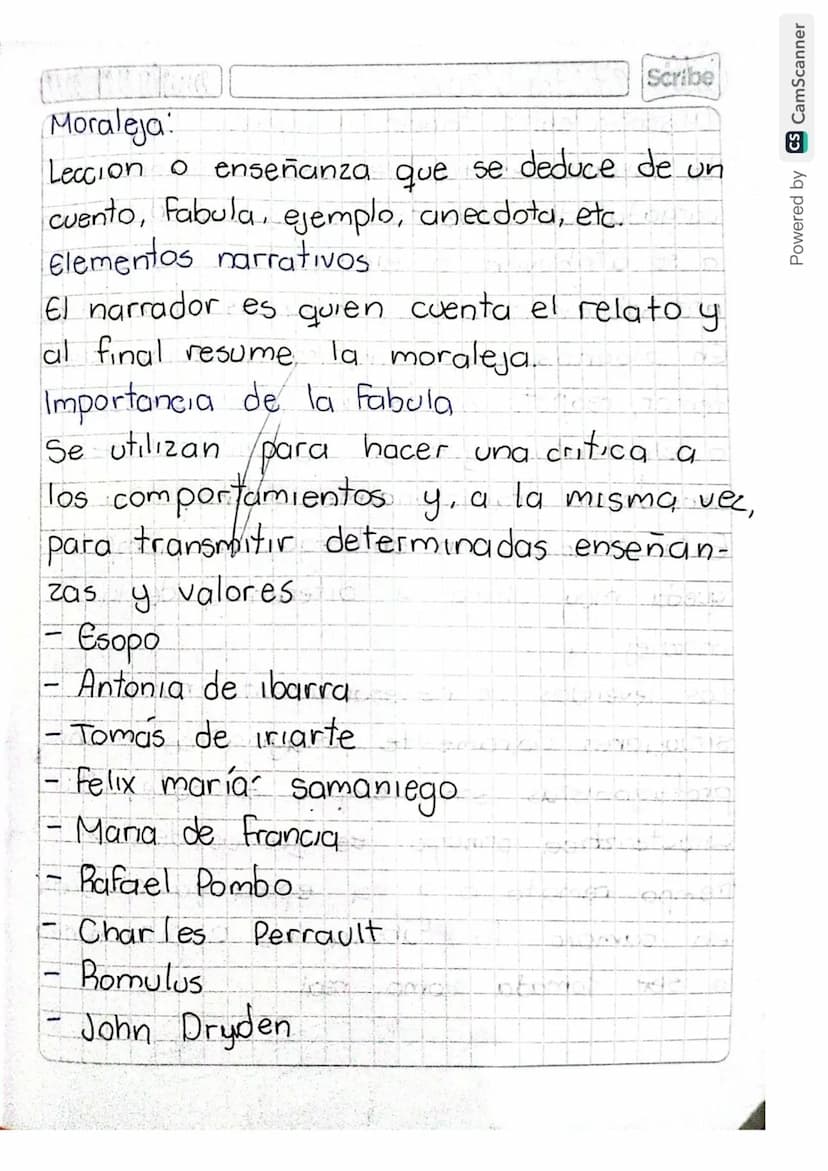 Scribe
Moraleja:
Leccion o enseñanza que se deduce de un
cuento, Fabula, ejemplo, anecdota, etc.
Elementos narrativos
El narrador es quien cuenta el relato y
al final resume la moraleja.
Importancia de la Fabula
Se utilizan para hacer una critica a
los comportamientos y, a la misma vez,
para transmitir determinadas enseñan-
zas y valores
- Esopo
- Antonia de ibarra
- Tomás de iriarte
- Felix maría samaniego
- Maria de Francia
- Rafael Pombo
- Charles Perrault
- Romulus
- John Dryden
Powered by CS CamScanner